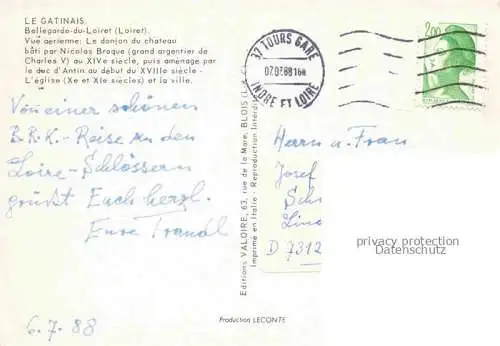 LE GATINAIS.
Bellegarde-du-Loiret (Loiret).
Vue aérienne: Le donjon du chateau
bâti par Nicolas Braque (grand argentier de
Charles V) au XIVe siècle, puis aménagé par
le duc d'Antin au début du XVIIIe siècle -
L'église (Xe et XIe siècles) et la ville.
37 TOURS GARE
INDRE ET LOIRE
2,00
Von einer schönen
B.R.K.-Reise zu den
Loire-Schlössern
grüßt Euch herzl.
Eure Traudl
6.7.88
Editions VALOIRE, 63, rue de la Mare, BLOIS
Imprimé en Italie - Reproduction Interdite
Production LECONTE
Herrn u. Frau
Josef
D 7312
privacy protection
Datenschutz